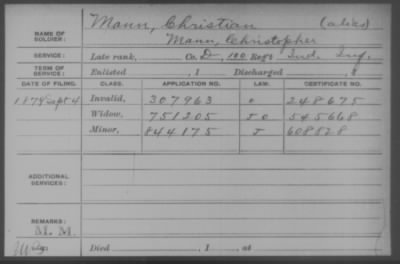 Mann, Christian (alias)
NAME OF SOLDIER: Mann, Christopher
SERVICE: Late rank, Co. D, 100 Regt Ind. Inf.
TERM OF SERVICE: Enlisted , 1 Discharged , 1
DATE OF FILING. CLASS. APPLICATION NO. LAW. CERTIFICATE NO.
1879 Sept 4 Invalid, 307963 248675
Widow, 751205 545668
Minor, 844175 J 608528
ADDITIONAL SERVICES:
REMARKS:
M. M.
Died , 1 , at